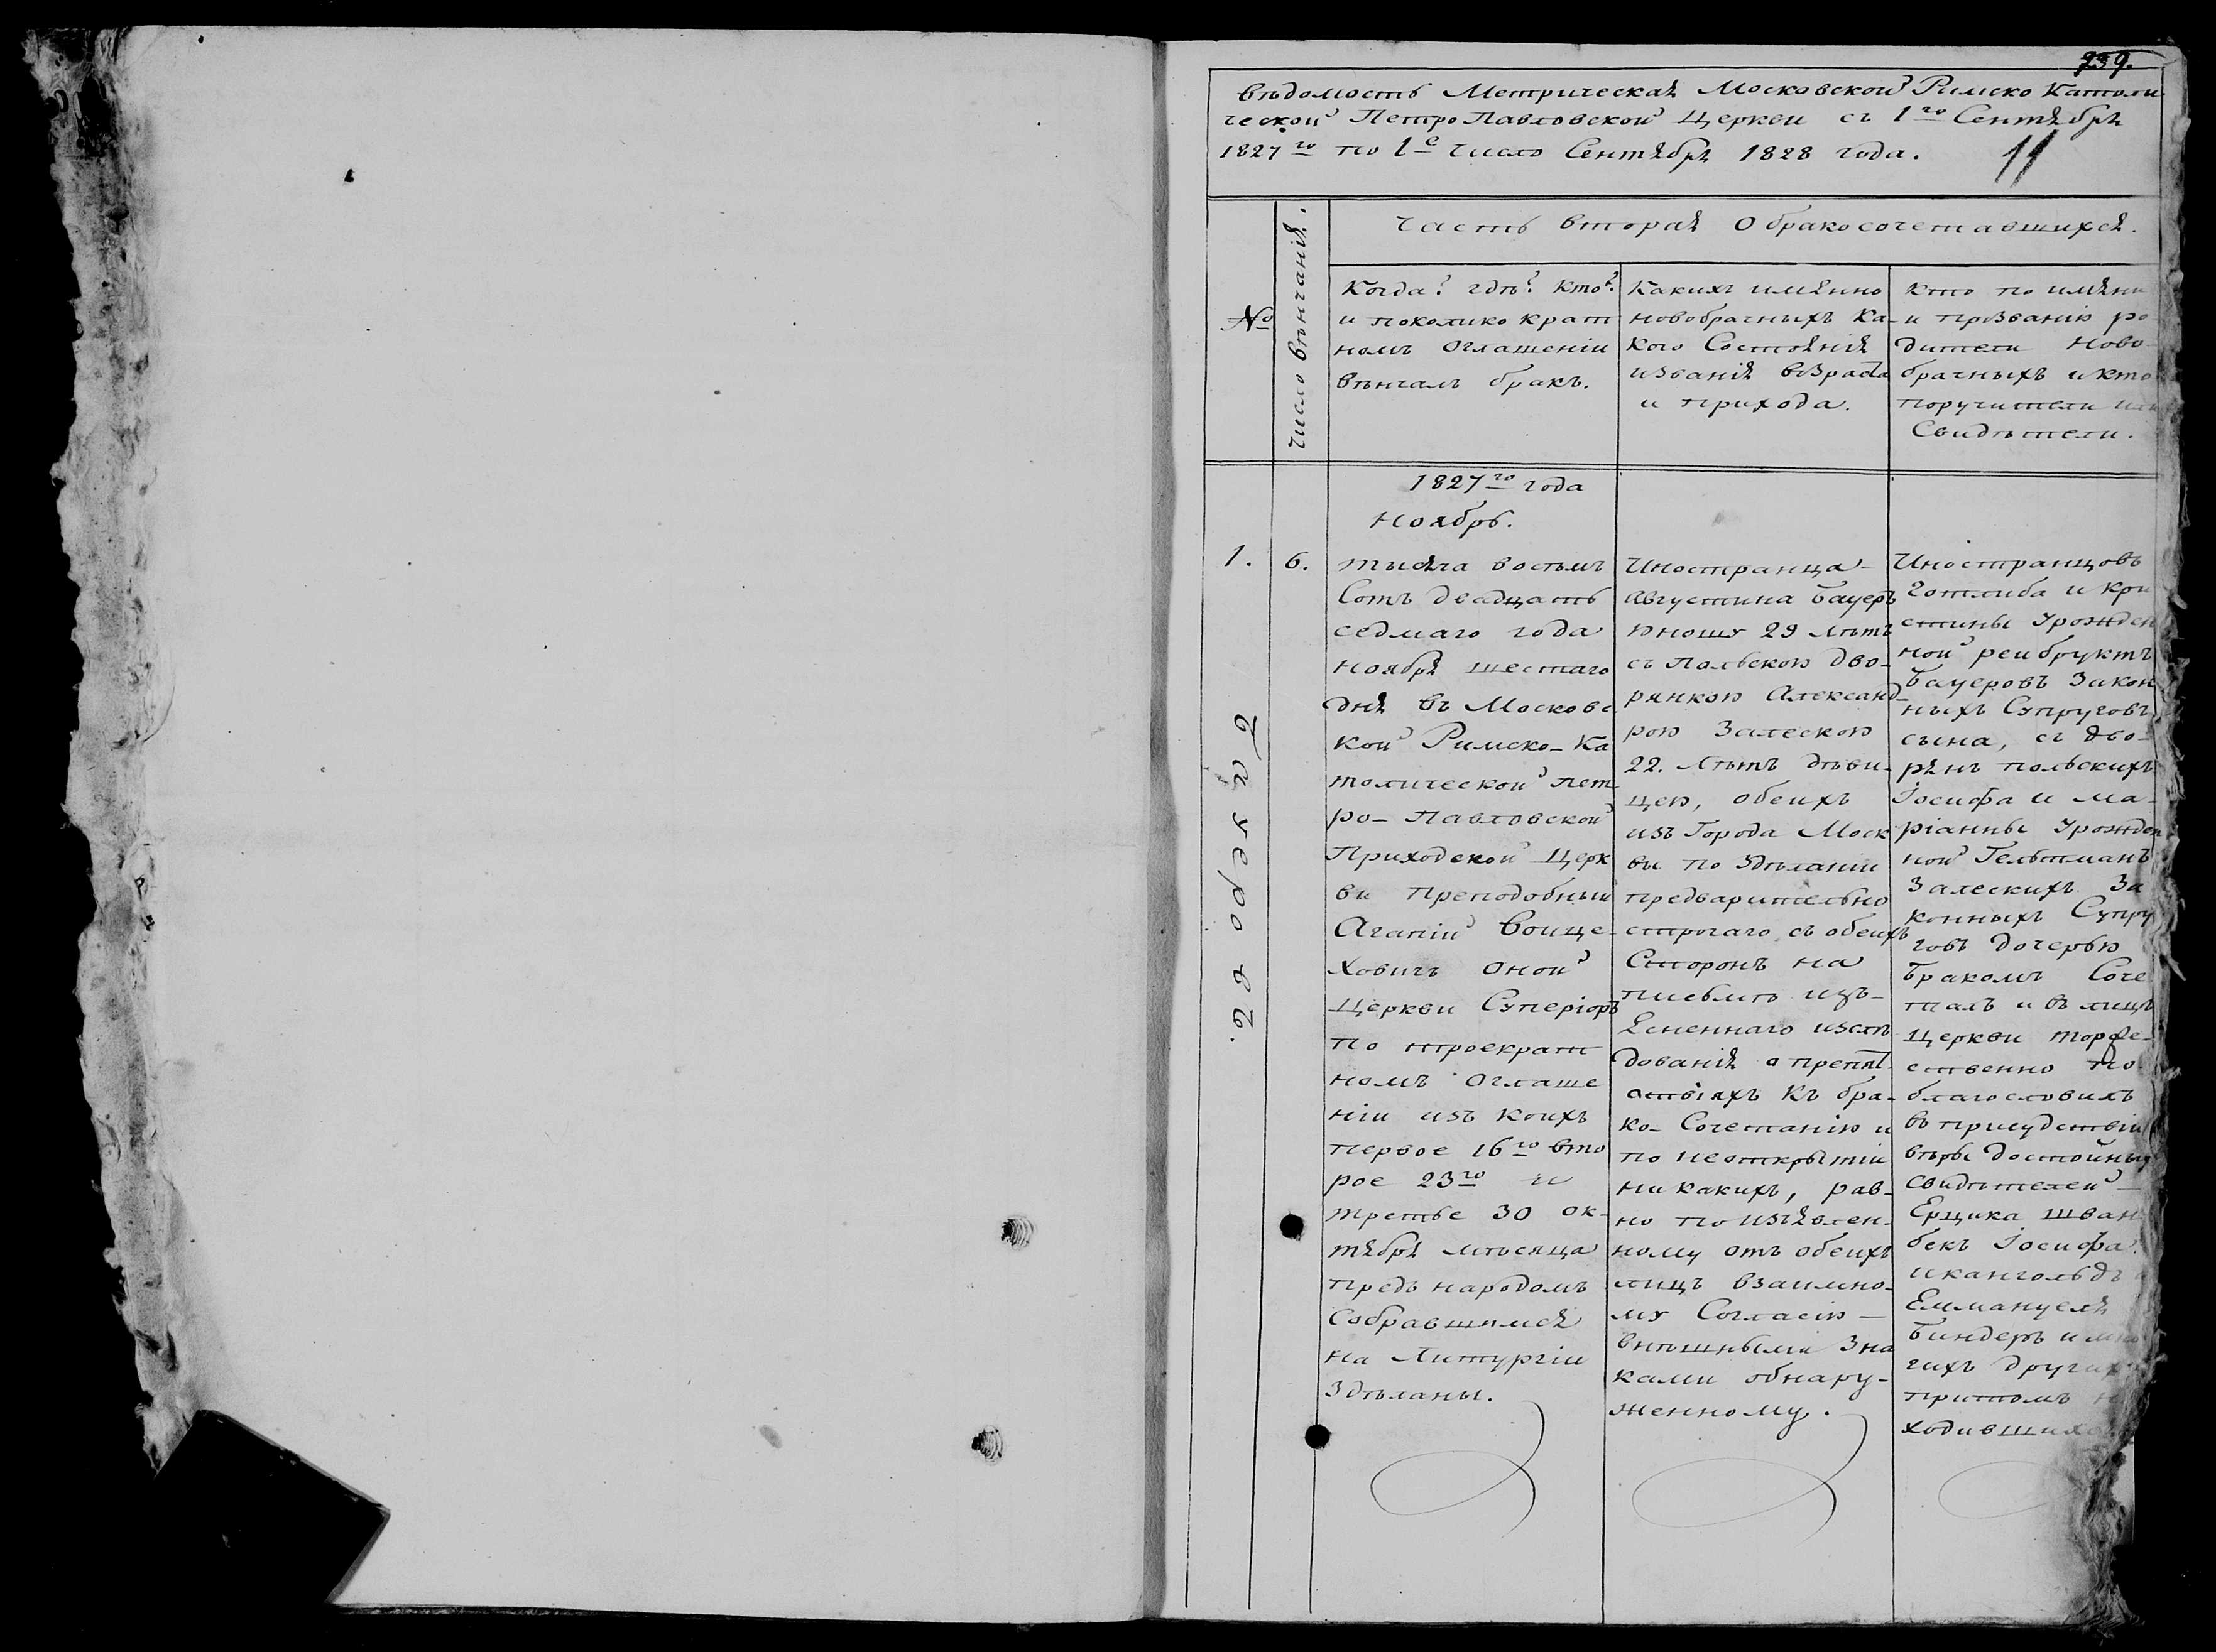 239.
Вѣдомость Метрическая Московской Римско Католи
ческой Петро Павловской Церкви съ 1го Сентября
1827го по 1е число Сентября 1828 года.
11
№
Число вѣнчанія.
Часть вторая О бракосочетавшихся.
Когда? гдѣ? Кто?
и поколико крат
номъ Оглашеніи
вѣнчалъ бракъ.
Какихъ имянно
новобрачныхъ ка-
кого Состоянія
и званія возраста
и прихода.
Кто по имяни
и прозванію ро
дители Ново-
брачныхъ и кто
поручители или
Свидѣтели.
1827го года
Ноябрь.
1.
6.
тысяча восемь
Сотъ двадцать
седмаго года
Ноября шестаго
дня въ Московс
кой Римско-Ка
толической Пет
ро-Павловской
Приходской Церк
ви Преподобный
Агапій Войце-
ховичъ Оной
Церкви Суперіоръ
по троекрат
номъ Оглаше
ніи изъ коихъ
первое 16го вто
рое 23го и
третье 30 ок-
тября мѣсяца
предъ народомъ
Собравшимся
на Литургіи
Здѣланы.
Иностранца
Августина Бауеръ
Юношу 29 лѣтъ
съ Польскою дво-
рянкою Александ-
рою Залескою
22. лѣтъ дѣви-
цею, обеихъ
изъ Города Моск
вы по Здѣланіи
предварительно
строгаго съ обеихъ
Сторонъ на
письмѣ изъ-
ясненнаго изслѣ
дованія о препят
ствіяхъ къ бра-
ко-Сочетанію и
по неоткрытіи
никакихъ, рав-
но по изъявлен-
ному отъ обеихъ
лицъ взаимно-
му Согласію —
внѣшными Зна
ками обнару-
женному.
Иностранцовъ
Готлиба и Кри
стины Урожден
ной Рейбруктъ
Бауеровъ Закон
ныхъ Супруговъ
сына, съ дво-
рянъ польскихъ
Іосифа и Ма-
ріанны Урожден
ной Гельтманъ
Залескихъ За
конныхъ Супру
говъ дочерью
Бракомъ Соче
талъ и въ лицѣ
Церкви торже-
ственно по
благословилъ
въ присудствіи
вѣры достойныхъ
Свидѣтелей —
Ерщика Шван
бекъ Іосифа
Икангольдъ
Еммануеля
Биндеръ и мно
гихъ другихъ
притомъ н
ходившихся